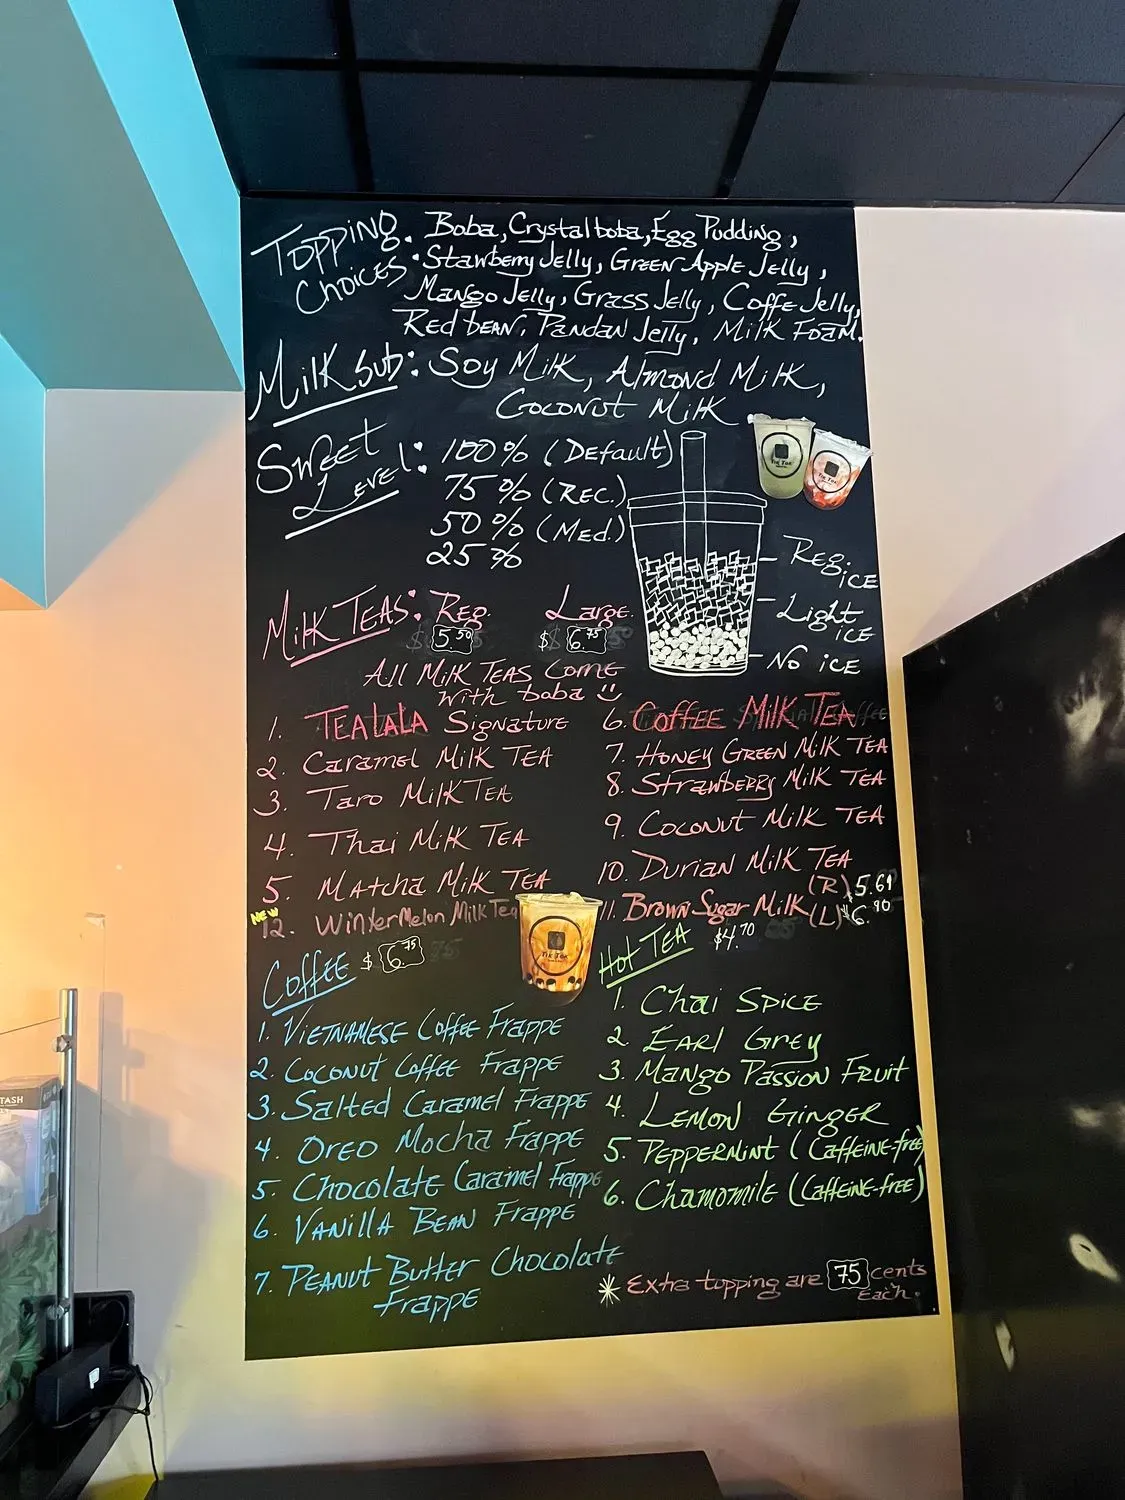 Topping Choices: Boba, Crystal boba, Egg Pudding,
Stawberry Jelly, Green Apple Jelly,
Mango Jelly, Grass Jelly, Coffe Jelly,
Red bean, Pandan Jelly, Milk Foam.
Milk sub: Soy Milk, Almond Milk,
Coconut Milk
Sweet Level: 100% (Default)
75% (Rec.)
50% (Med.)
25%
Tik Tok
Tik Tok
Reg. ice
Light ice
No ice
Milk Teas: Reg. Large
$5.50 $6.75
All Milk Teas Come
With boba
1. TEALALA Signature
2. Caramel Milk Tea
3. Taro Milk Tea
4. Thai Milk Tea
5. Matcha Milk Tea
NEW
12. Winter Melon Milk Tea
6. Coffee Milk Tea
7. Honey Green Milk Tea
8. Strawberry Milk Tea
9. Coconut Milk Tea
10. Durian Milk Tea
11. Brown Sugar Milk (R) 5.61
(L) $6.90
Tik Tok
Coffee $6.75
1. Vietnamese Coffee Frappe
2. Coconut Coffee Frappe
3. Salted Caramel Frappe
4. Oreo Mocha Frappe
5. Chocolate Caramel Frappe
6. Vanilla Bean Frappe
7. Peanut Butter Chocolate
Frappe
Hot Tea $4.70
1. Chai Spice
2. Earl Grey
3. Mango Passion Fruit
4. Lemon Ginger
5. Peppermint (Caffeine-free)
6. Chamomile (Caffeine-free)
* Extra topping are 75 cents
Each.
TASH